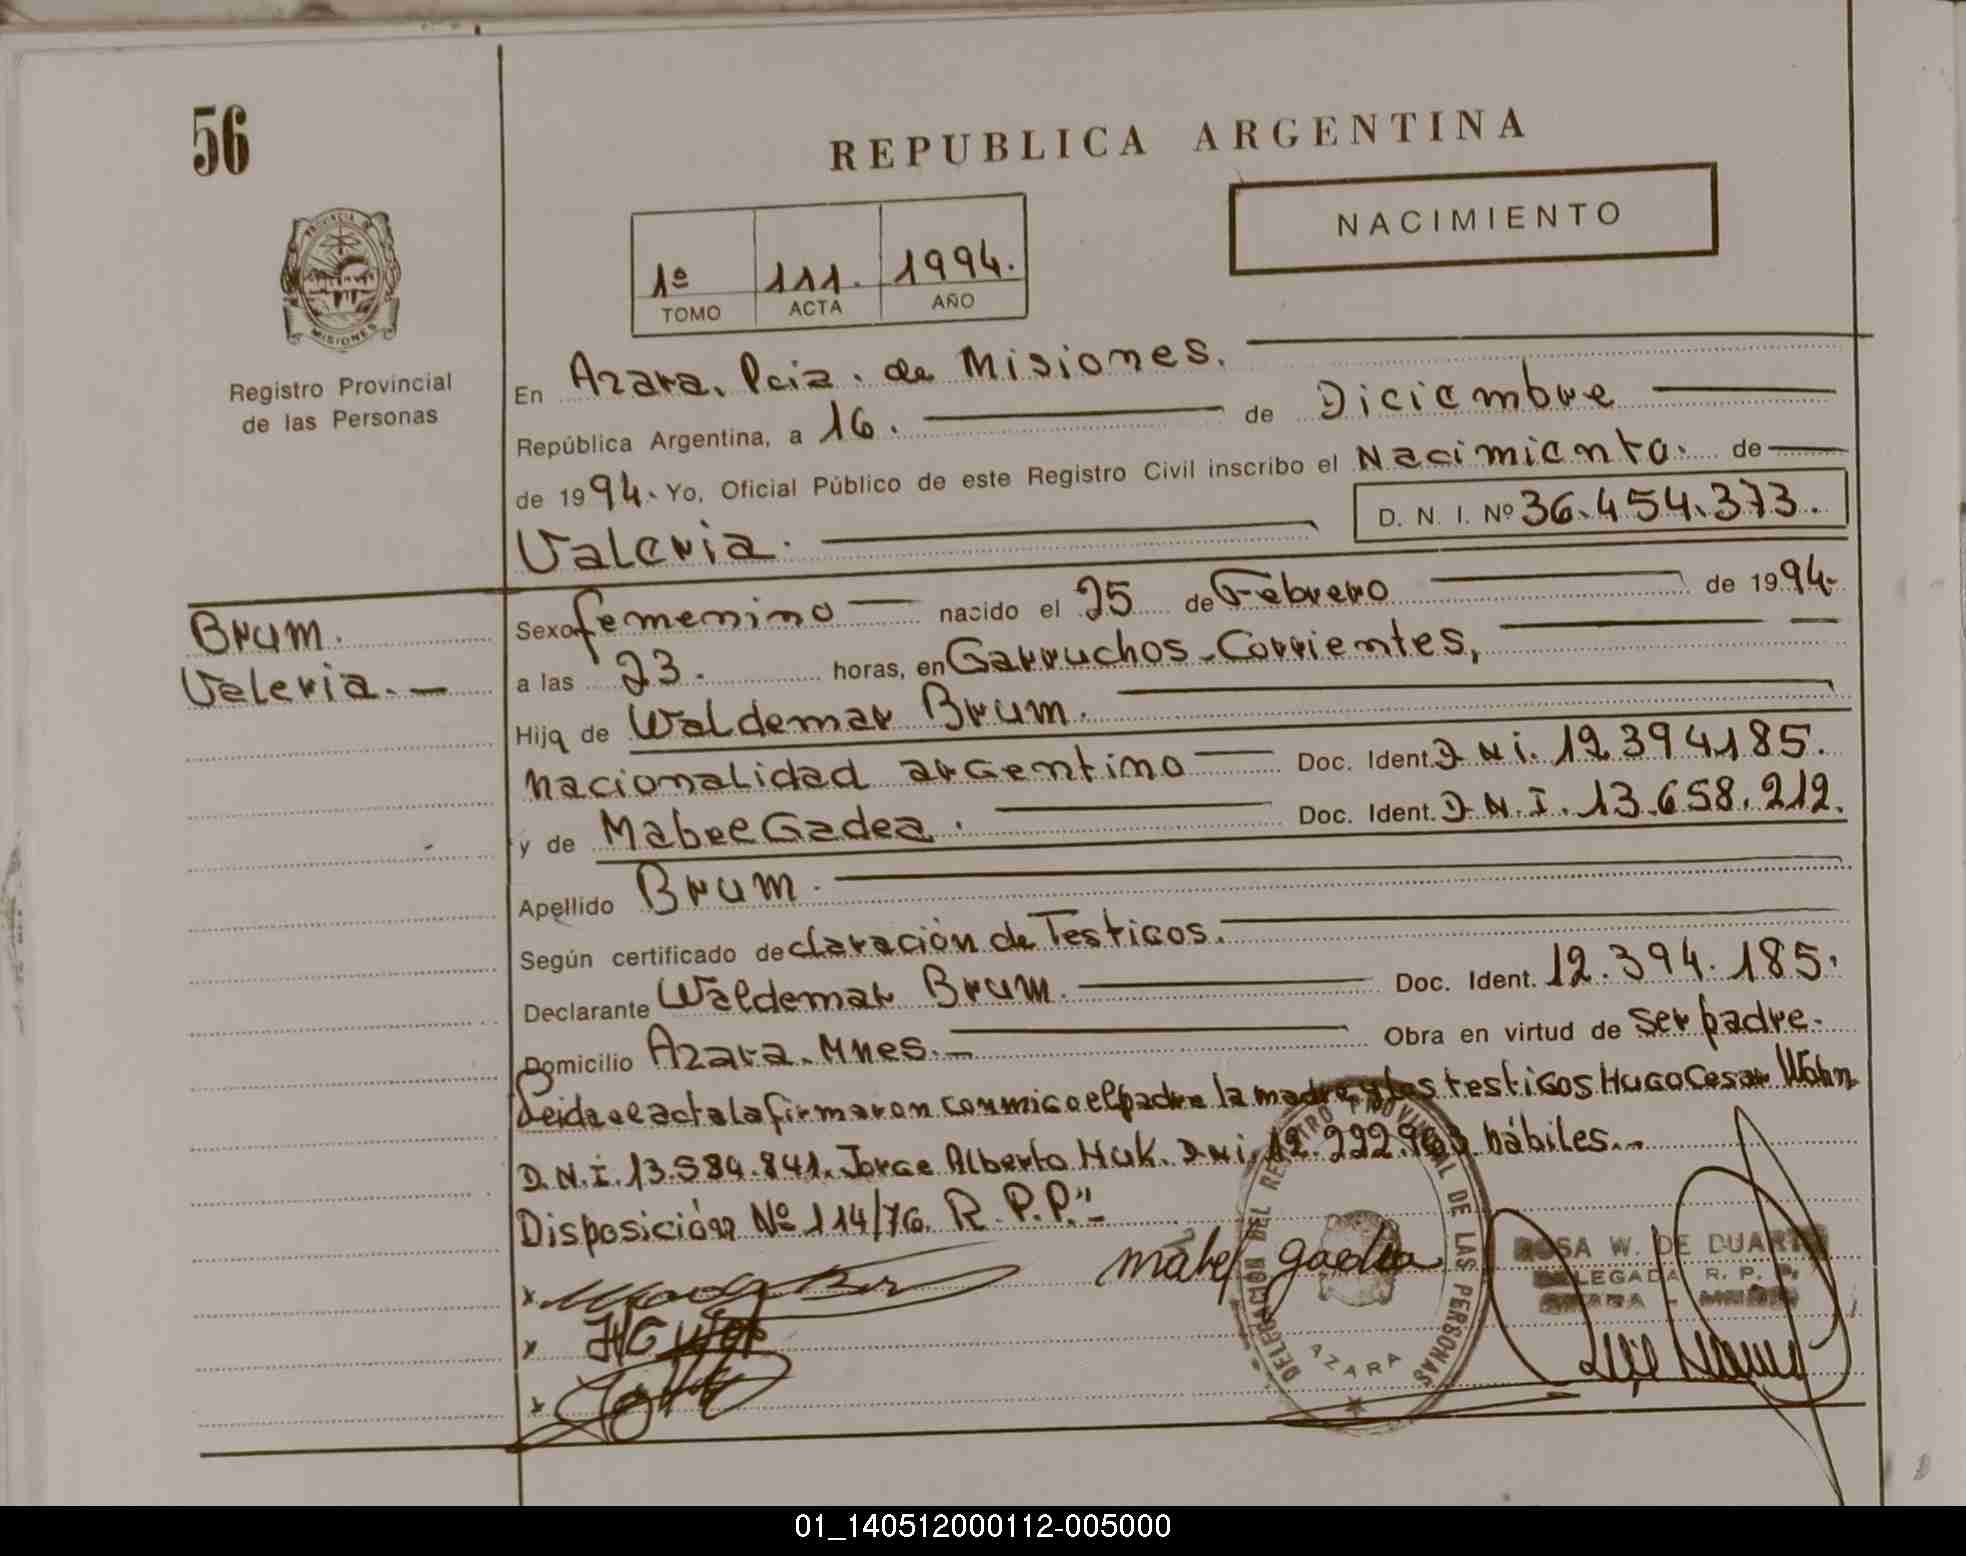 56
REPUBLICA ARGENTINA
NACIMIENTO
1º 111. 1994.
TOMO ACTA AÑO
PROVINCIA DE
MISIONES
Registro Provincial
de las Personas
En Azara. Pcia. de Misiones.
República Argentina, a 16. de Diciembre
de 1994. Yo, Oficial Público de este Registro Civil inscribo el Nacimiento. de
Valeria. D. N. I. Nº 36.454.373.
Brum.
Valeria. -
Sexo femenino nacido el 25 de Febrero de 1994-
a las 23. horas, en Garruchos-Corrientes,
Hija de Waldemar Brum.
nacionalidad argentino Doc. Ident. D N i. 12394185.
y de Mabel Gadea. Doc. Ident. D.N.I. 13.658.212.
Apellido Brum.
Según certificado declaración de Testigos.
Declarante Waldemar Brum. Doc. Ident. 12.394.185.
Domicilio Azara. Mnes. - Obra en virtud de ser padre.
Leida el acta la firmaron conmigo el padre la madre y los testigos Hugo Cesar Wohn
D.N.I. 13.584.841. Jorge Alberto Huk. D N i. 12.222.963 hábiles.-
Disposición Nº 114/76. R.P.P."-
Mabel Gadea
DELEGACION DEL REGISTRO PROVINCIAL DE LAS PERSONAS
AZARA
ROSA W. DE DUARTE
DELEGADA R. P. P.
AZARA - MNES
01_140512000112-005000